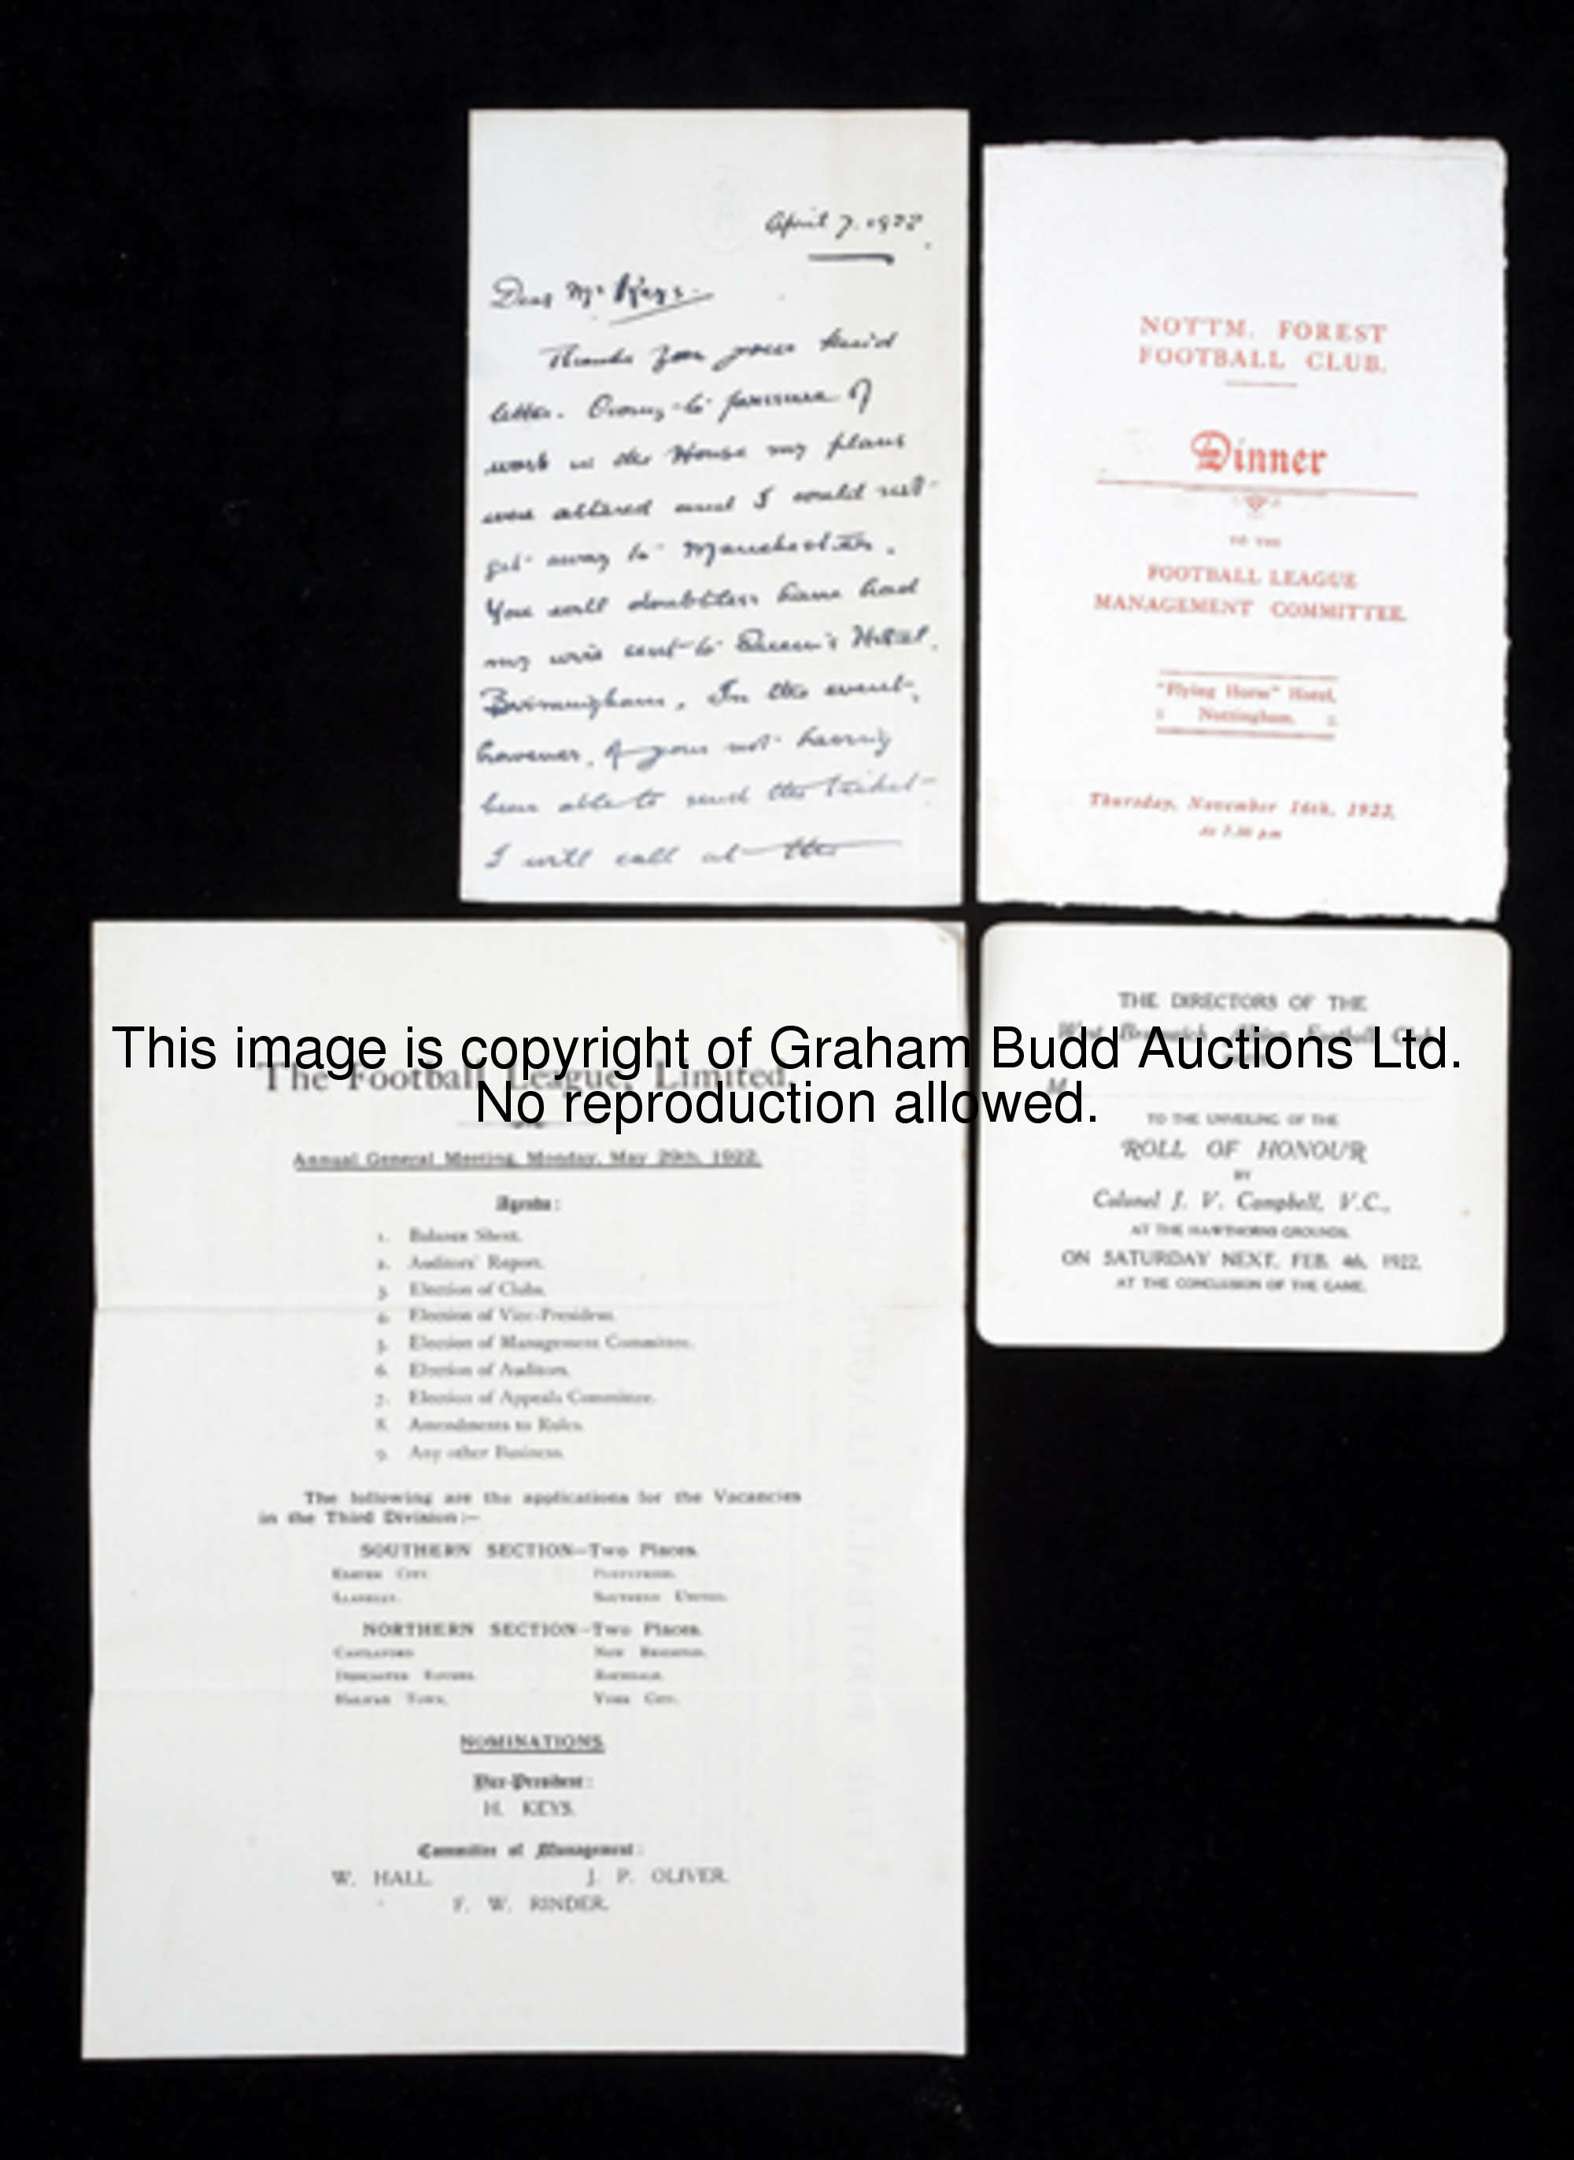 April 7. 1922.
Dear Mr Keys.
Thanks for your kind
letter. Owing to pressure of
work in the House my plans
were altered and I could not
get away to Manchester.
You will doubtless have had
my wire sent to Queen's Hotel,
Birmingham. In the event,
however, of your not having
been able to send the ticket
I will call at the
NOTTM. FOREST
FOOTBALL CLUB.
Dinner
TO THE
FOOTBALL LEAGUE
MANAGEMENT COMMITTEE.
"Flying Horse" Hotel,
Nottingham.
Thursday, November 16th, 1922,
At 7.30 pm
This image is copyright of Graham Budd Auctions Ltd.
No reproduction allowed.
The Football League, Limited.
Annual General Meeting, Monday, May 29th, 1922.
Agenda:
1. Balance Sheet.
2. Auditors' Report.
3. Election of Clubs.
4. Election of Vice-President.
5. Election of Management Committee.
6. Election of Auditors.
7. Election of Appeals Committee.
8. Amendments to Rules.
9. Any other Business.
The following are the applications for the Vacancies
in the Third Division:—
SOUTHERN SECTION—Two Places.
EXETER CITY. PONTYPRIDD.
LLANELLY. SOUTHEND UNITED.
NORTHERN SECTION—Two Places.
CASTLEFORD NEW BRIGHTON.
DONCASTER ROVERS. ROCHDALE.
HALIFAX TOWN. YORK CITY.
NOMINATIONS.
Vice-President:
H. KEYS.
Committee of Management:
W. HALL. J. P. OLIVER.
F. W. RINDER.
THE DIRECTORS OF THE
West Bromwich Albion Football Club
M
TO THE UNVEILING OF THE
ROLL OF HONOUR
BY
Colonel J. V. Campbell, V.C.,
AT THE HAWTHORNS GROUNDS,
ON SATURDAY NEXT, FEB. 4th, 1922,
AT THE CONCLUSION OF THE GAME.